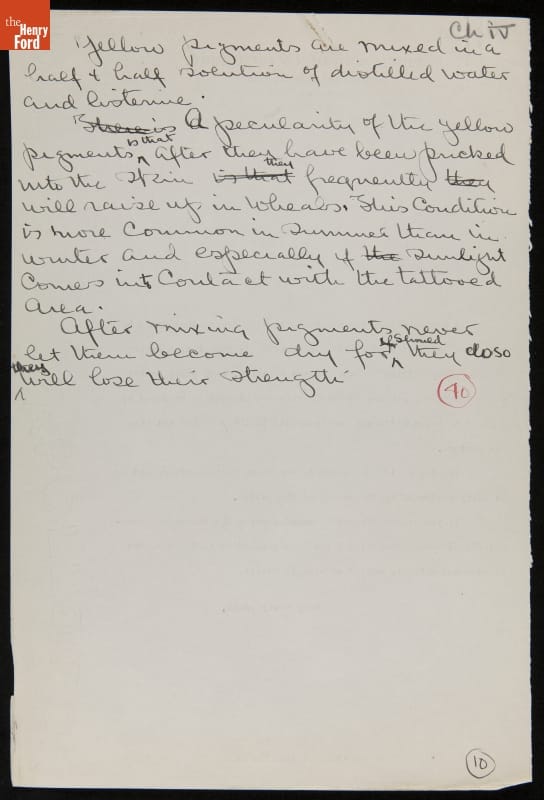 the
Henry
Ford
Ch IV
Yellow pigments are mixed in a
half & half solution of distilled water
and listerine.
There is A peculiarity of the yellow
pigments is that After they have been pricked
into the skin is that they frequently they
will raise up in wheals. This Condition
is more Common in summer than in
winter and especially if the sunlight
Comes into Contact with the tattooed
area.
After mixing pigments never
let them become dry for if they do so
they will lose their strength
40
10